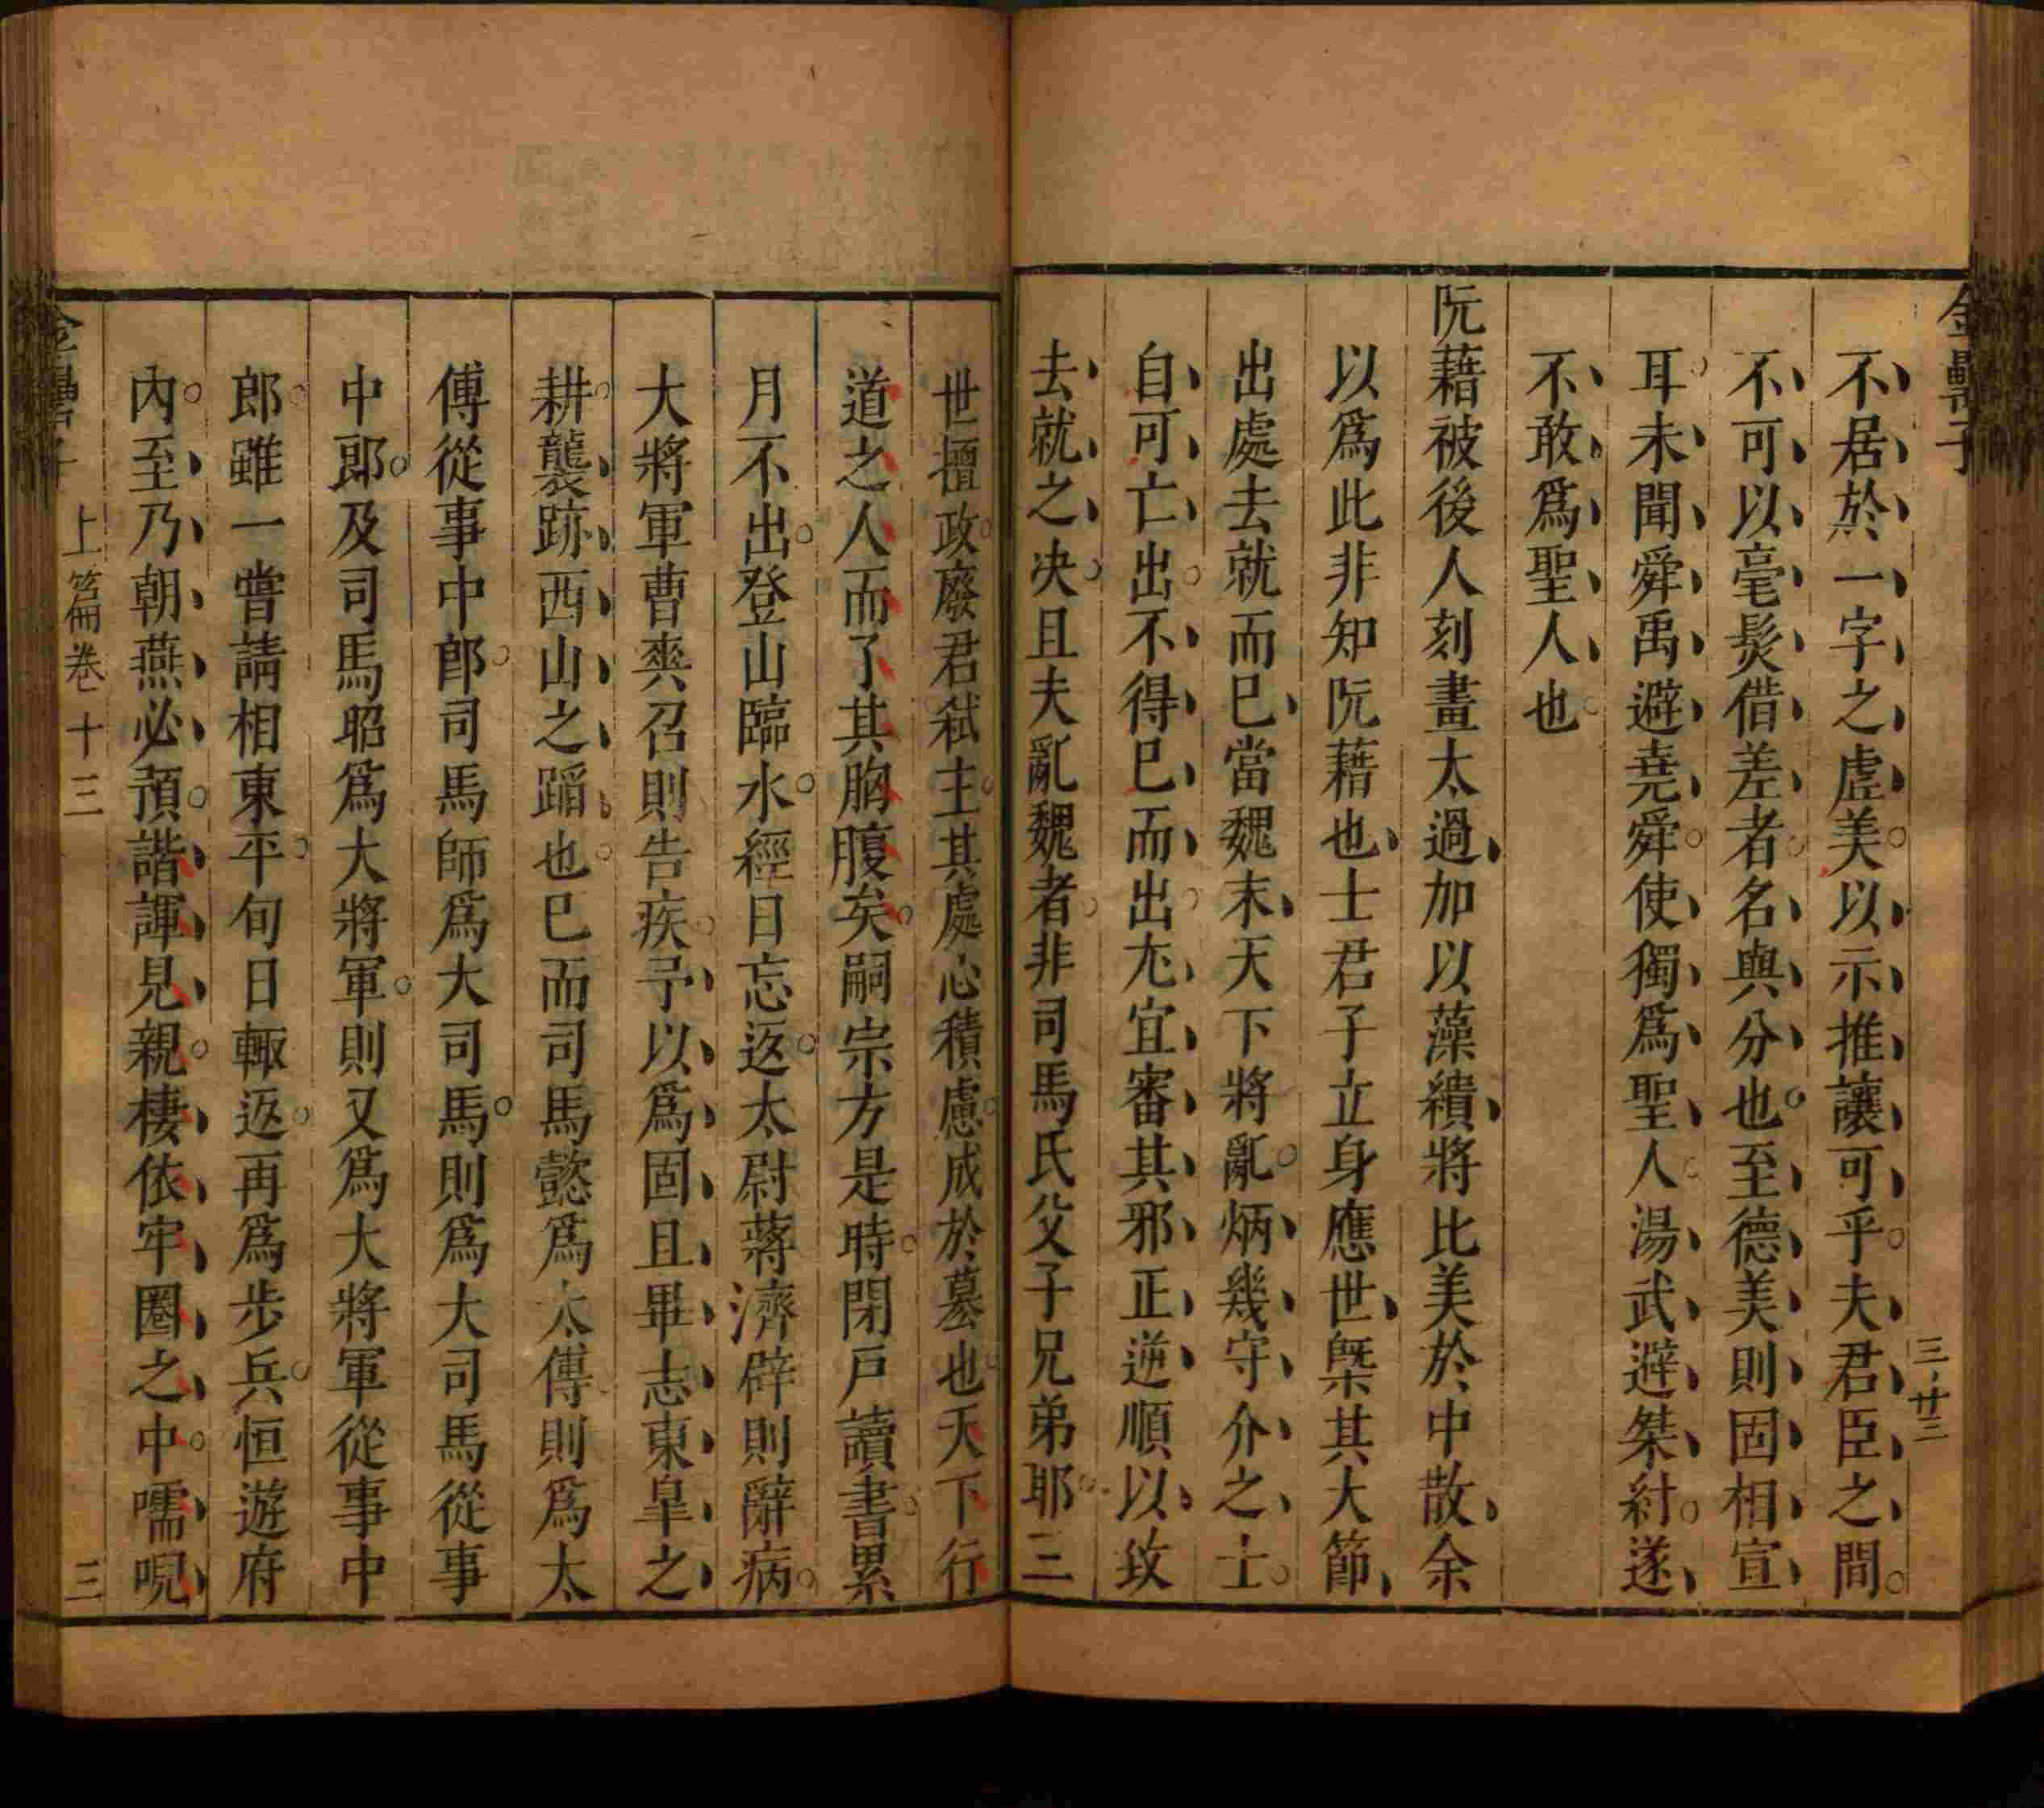 金罍子
三廿三
不居於一字之虛美以示推讓可乎夫君臣之間
不可以毫髮借差者名與分也至德美則固相宣
耳未聞舜禹避堯舜使獨爲聖人湯武避桀紂遂
不敢爲聖人也
阮藉被後人刻畫太過加以藻繢將比美於中散余
以爲此非知阮藉也士君子立身應世槩其大節
出處去就而巳當魏末天下將亂炳幾守介之士
自可亡出不得巳而出尤宜審其邪正逆順以玫
去就之决且夫亂魏者非司馬氏父子兄弟耶三
世擅政廢君弑主其處心積慮成於墓也天下行
道之人而了其胸腹矣嗣宗方是時閉戸讀書累
月不出登山臨水經日忘返太尉蔣濟辟則辭病
大將軍曹爽召則告疾予以爲固且畢志東皐之
耕襲跡西山之蹈也巳而司馬懿爲太傅則爲太
傅從事中郎司馬師爲大司馬則爲大司馬從事
中郎及司馬昭爲大將軍則又爲大將軍從事中
郎雖一嘗請相東平旬日輙返再爲步兵恒遊府
內至乃朝燕必預諧諢見親棲依牢圈之中嚅哯
金罍子
上篇卷十三
三